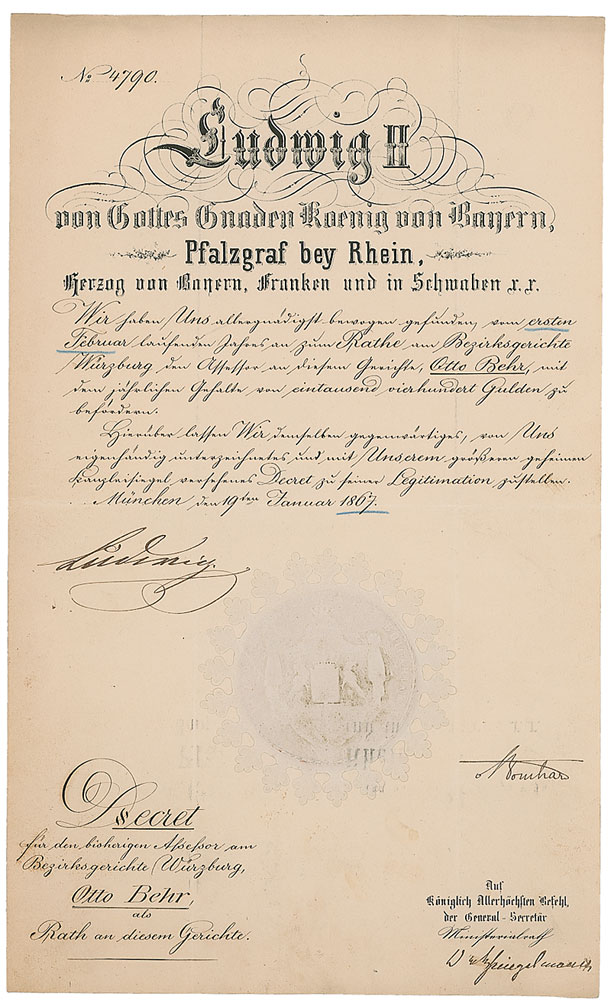 No 4790.
Ludwig II
von Gottes Gnaden Koenig von Bayern,
Pfalzgraf bey Rhein,
Herzog von Bayern, Franken und in Schwaben x.x.
Wir haben Uns allergnädigst bewogen gefunden, vom ersten
Februar laufenden Jahres an zum Rathe am Bezirksgerichte
Würzburg den Assessor an diesem Gerichte, Otto Behr, mit
dem jährlichen Gehalte von eintausend vierhundert Gulden zu
befördern.
Hierüber lassen Wir demselben gegenwärtiges, von Uns
eigenhändig unterzeichnetes und mit Unserem größeren geheimen
Kanzleisiegel versehenes Decret zu seiner Legitimation zustellen.
München den 19ten Januar 1867.
Ludwig.
Decret
für den bisherigen Assessor am
Bezirksgerichte Würzburg,
Otto Behr,
als
Rath an diesem Gerichte.
Auf
Königlich Allerhöchsten Befehl,
der General-Secretär
Ministerialrath